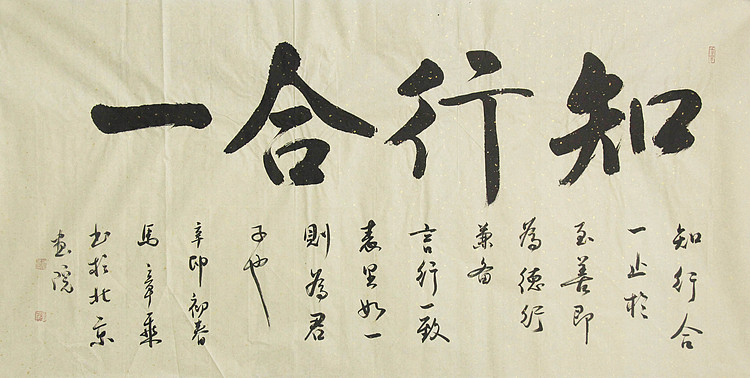 知行合一
知行合
一止於
至善即
為德行
兼备
言行一致
表里如一
則為君
子也
辛卯初春
馬章乘
书於北京
画院